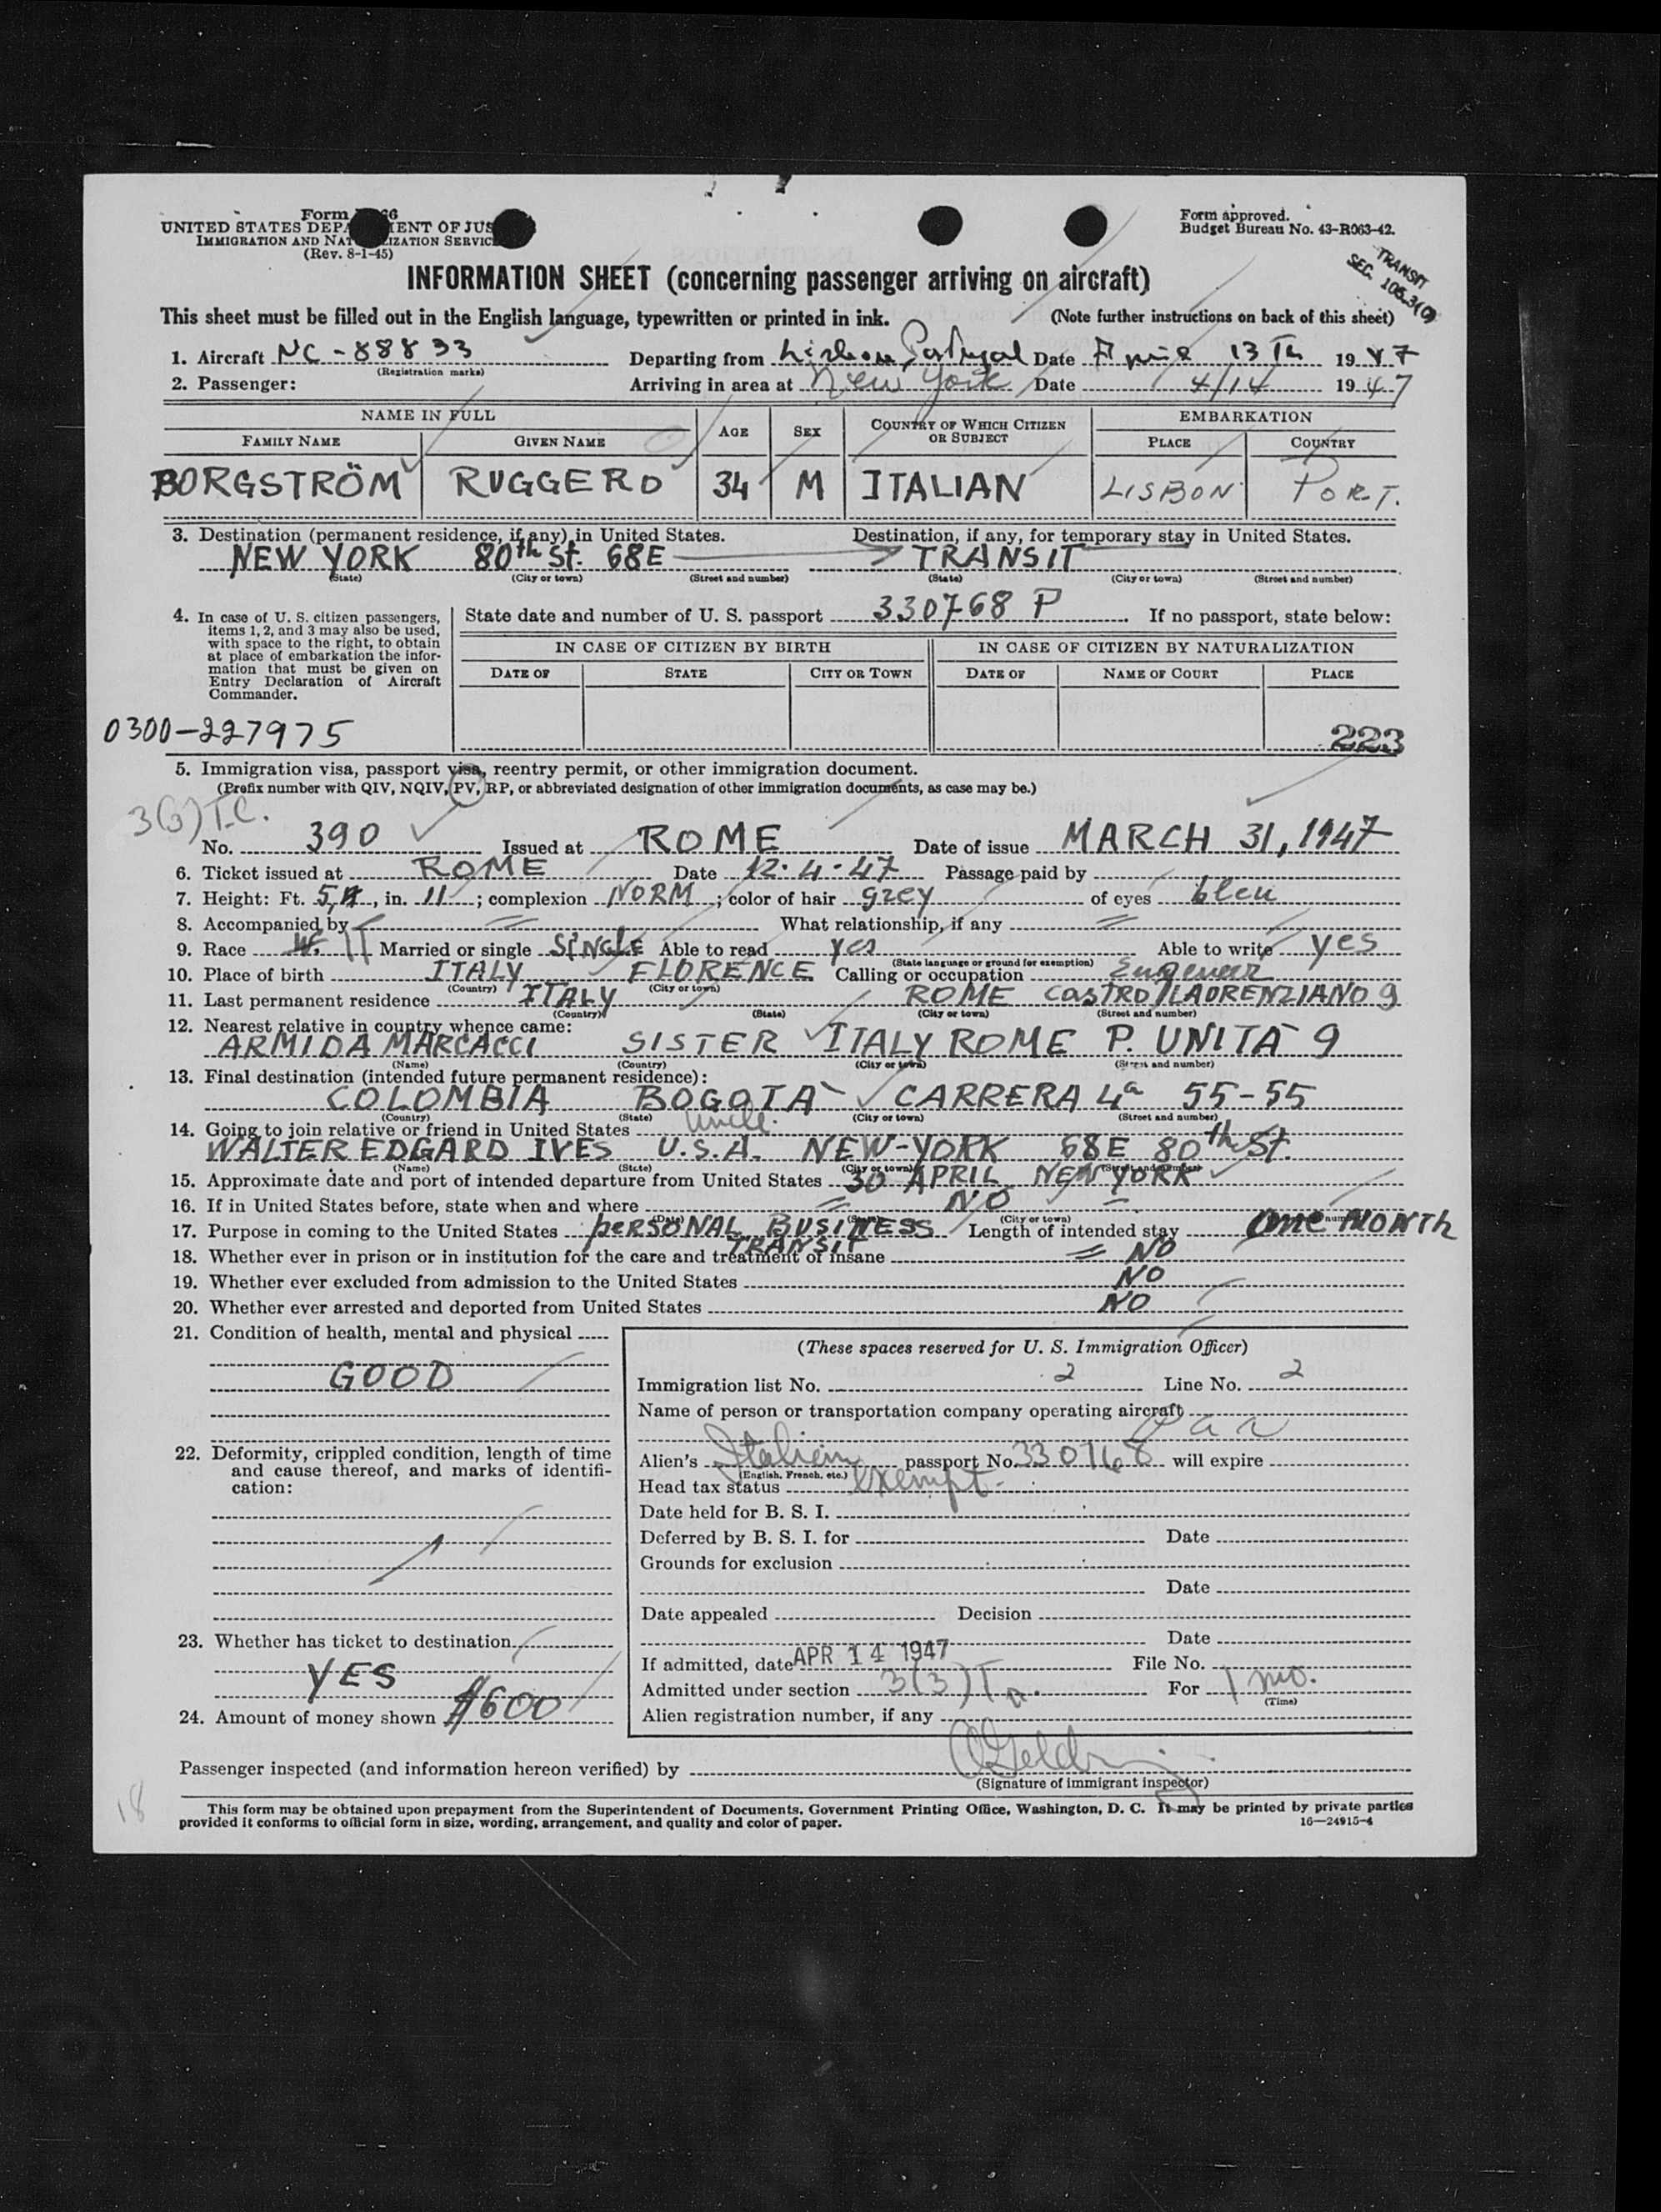 Form 66
UNITED STATES DEPA MENT OF JUS
IMMIGRATION AND NAT LIZATION SERVIC
(Rev. 8-1-45)
Form approved.
Budget Bureau No. 43-R063-42.
TRANSIT
SEC. 105.3(c)
INFORMATION SHEET (concerning passenger arriving on aircraft)
This sheet must be filled out in the English language, typewritten or printed in ink. (Note further instructions on back of this sheet)
1. Aircraft NC-88833 Departing from Lisbon, Portugal Date April 13th 1947
(Registration marks)
2. Passenger: Arriving in area at New York Date 4/14 1947
NAME IN FULL AGE SEX COUNTRY OF WHICH CITIZEN OR SUBJECT EMBARKATION
FAMILY NAME GIVEN NAME PLACE COUNTRY
BORGSTRÖM RUGGERO 34 M ITALIAN LISBON PORT.
3. Destination (permanent residence, if any) in United States. Destination, if any, for temporary stay in United States.
NEW YORK 80th St. 68E TRANSIT
(State) (City or town) (Street and number) (State) (City or town) (Street and number)
4. In case of U. S. citizen passengers, items 1, 2, and 3 may also be used, with space to the right, to obtain at place of embarkation the information that must be given on Entry Declaration of Aircraft Commander.
State date and number of U. S. passport 330768 P If no passport, state below:
IN CASE OF CITIZEN BY BIRTH IN CASE OF CITIZEN BY NATURALIZATION
DATE OF STATE CITY OR TOWN DATE OF NAME OF COURT PLACE
0300-227975
223
5. Immigration visa, passport visa, reentry permit, or other immigration document.
(Prefix number with QIV, NQIV, PV, RP, or abbreviated designation of other immigration documents, as case may be.)
3(3) T.C.
No. 390 Issued at ROME Date of issue MARCH 31, 1947
6. Ticket issued at ROME Date 12.4.47 Passage paid by
7. Height: Ft. 5, in. 11; complexion NORM; color of hair grey of eyes bleu
8. Accompanied by = What relationship, if any =
9. Race W. Married or single SINGLE Able to read yes Able to write yes
(State language or ground for exemption)
10. Place of birth ITALY FLORENCE Calling or occupation Engeneer
(Country) (City or town)
11. Last permanent residence ITALY ROME CASTRO LAURENZIANO 9
(Country) (State) (City or town) (Street and number)
12. Nearest relative in country whence came:
ARMIDA MARCACCI SISTER ITALY ROME P. UNITÀ 9
(Name) (Country) (City or town) (Street and number)
13. Final destination (intended future permanent residence):
COLOMBIA BOGOTÀ CARRERA 4a 55-55
(Country) (State) (City or town) (Street and number)
14. Going to join relative or friend in United States Uncle.
WALTER EDGARD IVES U.S.A. NEW-YORK 68E 80th St.
(Name) (State) (City or town) (Street and number)
15. Approximate date and port of intended departure from United States 30 APRIL NEW YORK
16. If in United States before, state when and where = NO =
(Date) (State) (City or town)
17. Purpose in coming to the United States PERSONAL BUSINESS Length of intended stay One MONTH
TRANSIT
18. Whether ever in prison or in institution for the care and treatment of insane = NO
19. Whether ever excluded from admission to the United States NO
20. Whether ever arrested and deported from United States NO
21. Condition of health, mental and physical
GOOD
22. Deformity, crippled condition, length of time and cause thereof, and marks of identification:
23. Whether has ticket to destination
YES
24. Amount of money shown $600
(These spaces reserved for U. S. Immigration Officer)
Immigration list No. 2 Line No. 2
Name of person or transportation company operating aircraft
Paa
Alien's Italian passport No. 330768 will expire
(English, French, etc.)
Head tax status Exempt.
Date held for B. S. I.
Deferred by B. S. I. for Date
Grounds for exclusion
Date
Date appealed Decision
Date
If admitted, date APR 14 1947 File No.
Admitted under section 3(3) For 1 mo.
(Time)
Alien registration number, if any
Passenger inspected (and information hereon verified) by
(Signature of immigrant inspector)
18
This form may be obtained upon prepayment from the Superintendent of Documents, Government Printing Office, Washington, D. C. It may be printed by private parties
provided it conforms to official form in size, wording, arrangement, and quality and color of paper. 16—24915-4